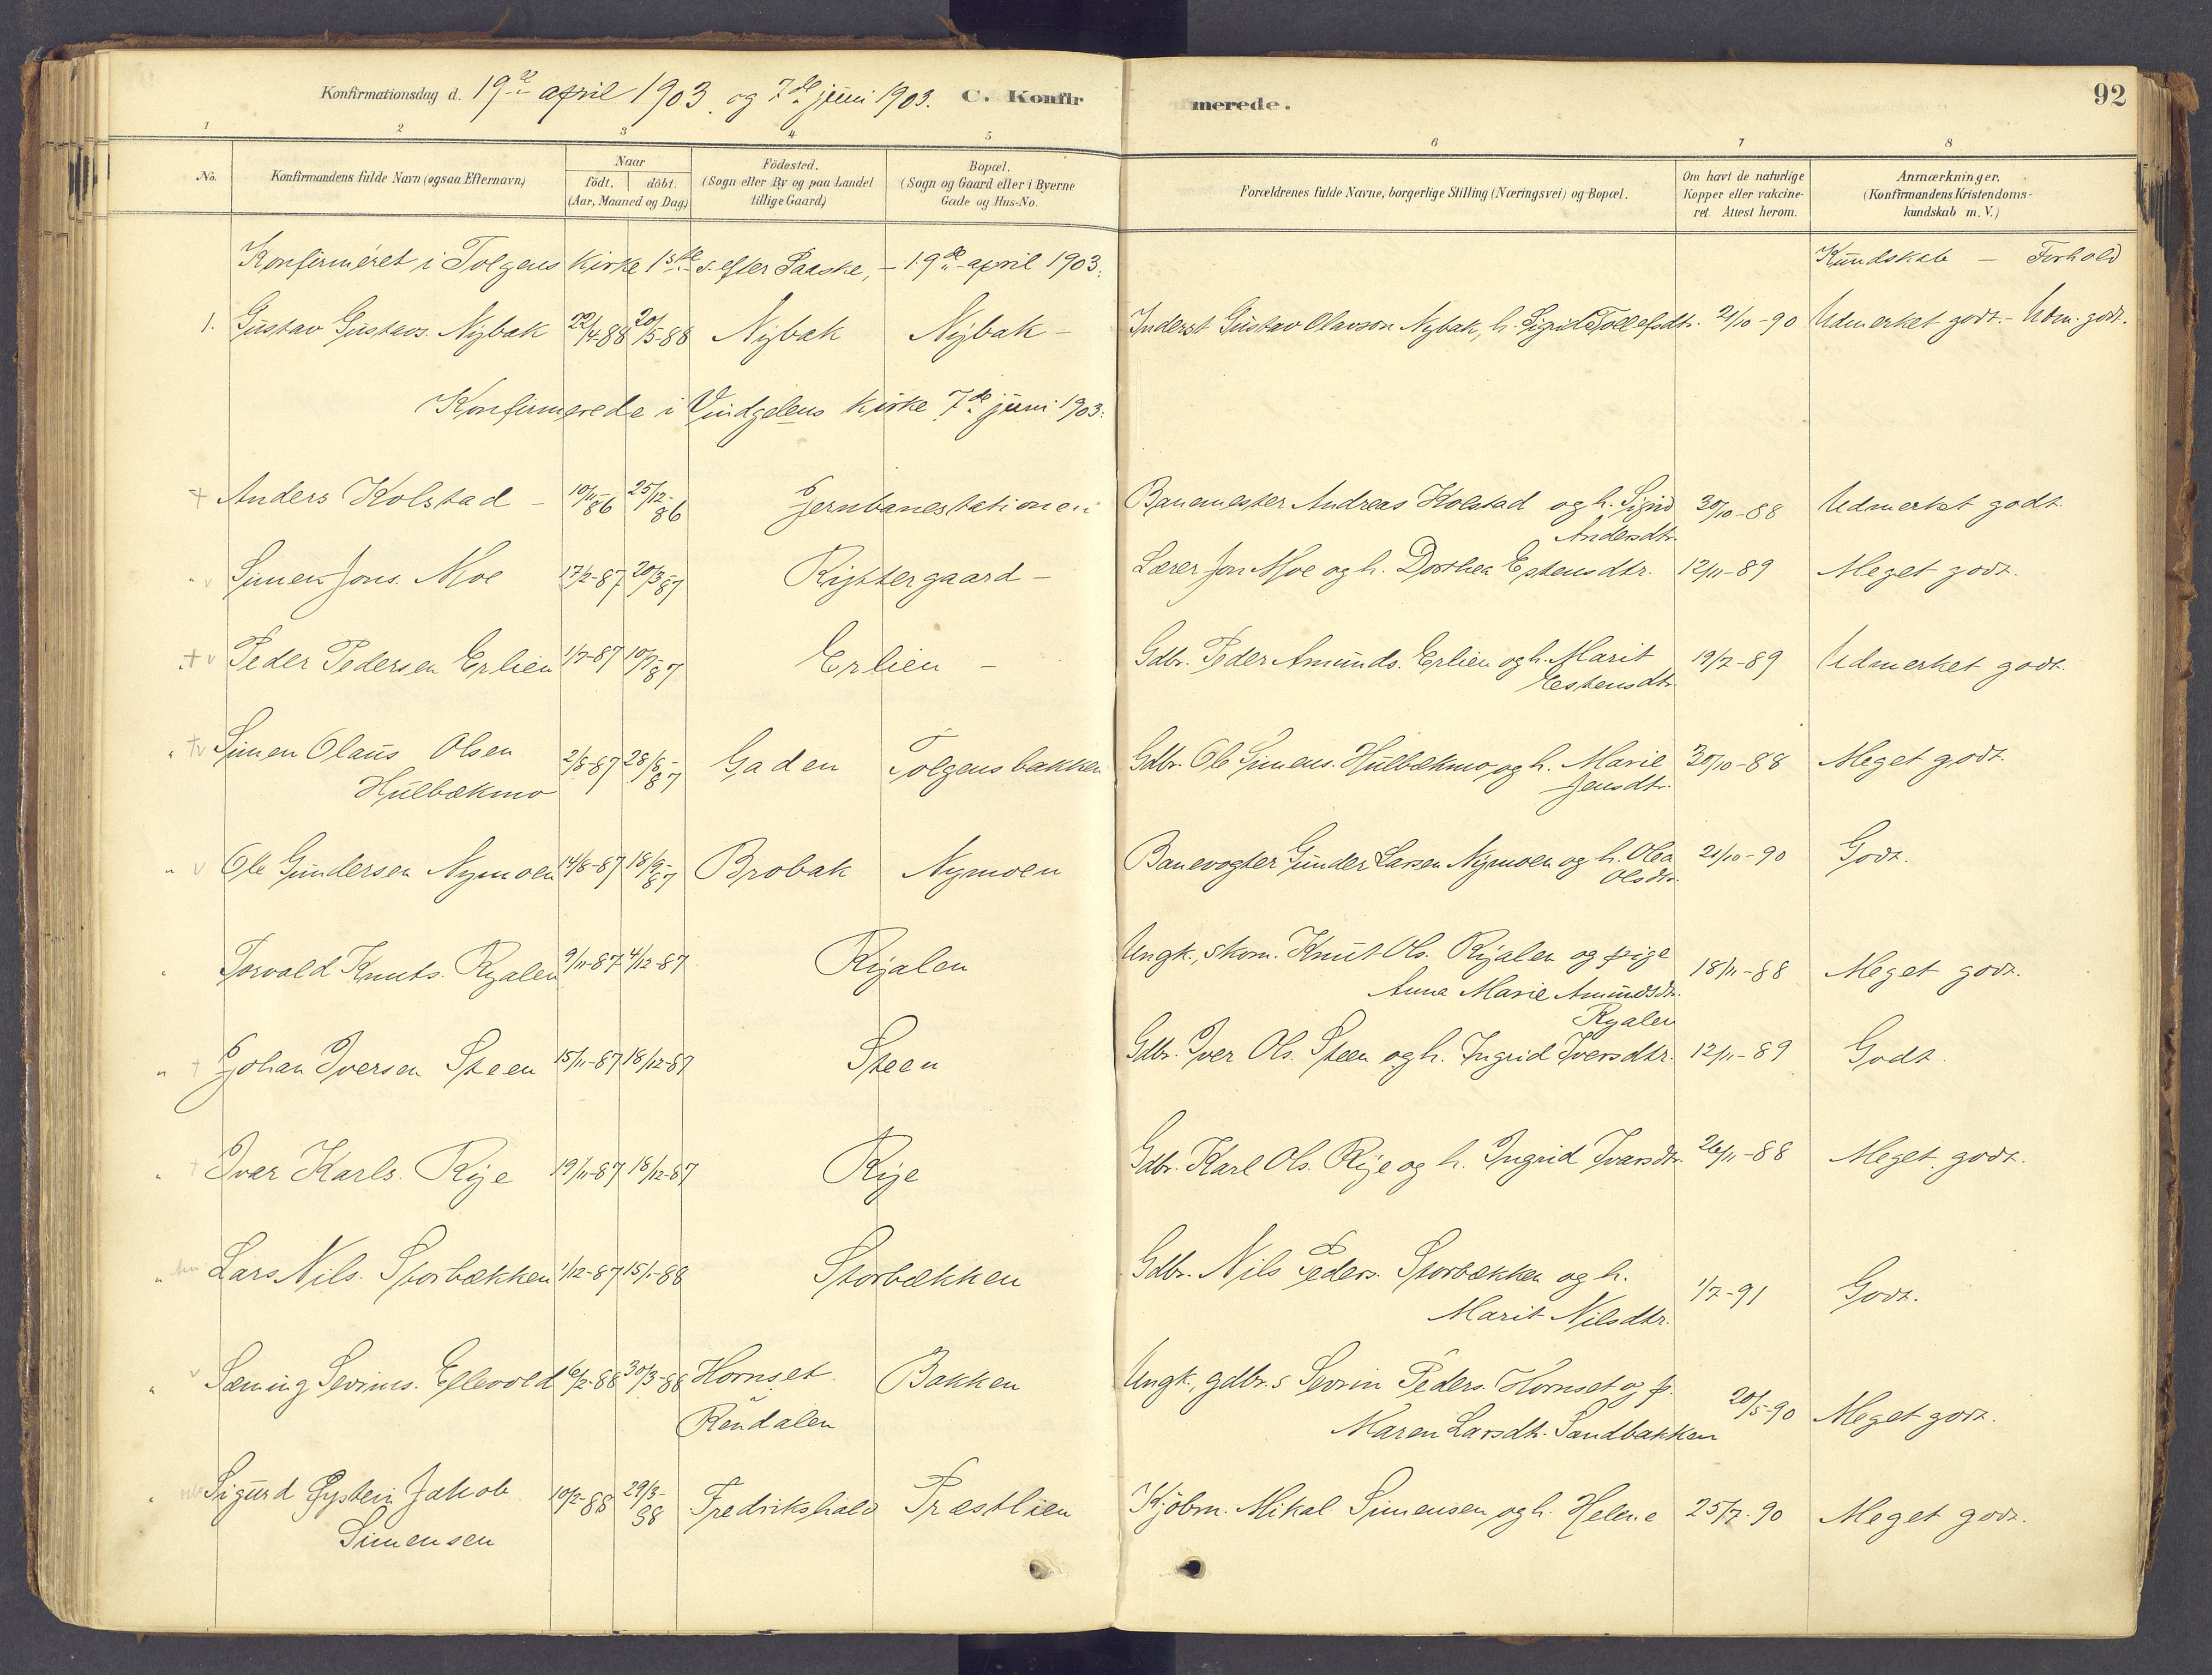 Konfirmationsdag d. 19de april 1903. og 7de juni 1903. C. Konfirmerede. 92
1 2 3 4 5 6 7 8
No. Konfirmandens fulde Navn (ogsaa Efternavn) Naar födt. döbt. (Aar, Maaned og Dag.) Födested. (Sogn eller By og paa Landet tillige Gaard) Bopæl. (Sogn og Gaard eller i Byerne Gade og Hus-No. Forældrenes fulde Navne, borgerlige Stilling (Næringsvei) og Bopæl. Om havt de naturlige Kopper eller vakcineret. Attest herom. Anmærkninger. (Konfirmandens Kristendomskundskab m. V.)
Konfirmeret i Tolgens Kirke 1ste s. efter Paaske, - 19de april 1903: Kundskab - Forhold
1. Gustav Gustavs. Nybak 22/4-88 20/5-88 Nybak Nybak - Inderst Gustav Olavson Nybak, h. Sigrid Tollefsdtr. 21/10-90 Udmerket godt. - Udm. godt.
Konfirmerede i Vindgelens Kirke 7de juni 1903:
Anders Kolstad - 10/11-86 25/12-86 Jernbanestationen Banemester Andreas Kolstad og h. Sigrid 30/10-88 Udmerket godt
Andersdtr.
Simen Jons. Moe 17/2-87 20/3-87 Ryttergaard - Lærer Jon Moe og h. Dorthea Estensdtr. 12/11-89 Meget godt.
Peder Pedersen Erlien 1/7-87 10/7-87 Erlien - Gdbr. Peder Amunds. Erlien og h. Marit 19/7-89 Udmerket godt.
Estensdtr.
Simen Olaus Olsen 2/8-87 28/8-87 Gaden Tolgensbakken Gdbr. Ole Simens. Hulbækmo og h. Marie 30/10-88 Meget godt.
Hulbækmo Jensdtr.
Ole Gundersen Nymoen 14/8-87 18/9-87 Brobak Nymoen Banevogter Gunder Larsen Nymoen og h. Olea 21/10-90 Godt.
Olsdtr.
Torvald Knuts. Ryalen 9/11-87 4/12-87 Ryalen Ungk., skom. Knut Ols. Ryalen og pige 18/11-88 Meget godt.
Anna Marie Amundsdtr.
Ryalen
Johan Iversen Steen 15/11-87 18/12-87 Steen Gdbr. Iver Ols. Steen og h. Ingrid Iversdtr. 12/11-89 Godt.
Iver Karls. Rye 19/11-87 18/12-87 Rye Gdbr. Karl Ols. Rye og h. Ingrid Ivarsdtr. 26/11-88 Meget godt.
Lars Nils. Storbækken 1/12-87 15/1-88 Storbækken Gdbr. Nils Peders. Storbækken og h. 1/7-91 Godt.
Marit Nilsdtr.
Sæming Sevrins. Ellevold 6/2-88 30/3-88 Hornset Bakken Ungk., gdbr.s Sevrin Peders. Hornset og p. 20/5-90 Meget godt.
Rendalen Maren Larsdtr. Sandbakken
Sigurd Øystein Jakob 10/2-88 29/3-88 Fredrikshald Præstlien Kjøbm. Mikal Simensen og h. Helene 25/7-90 Meget godt.
Simensen